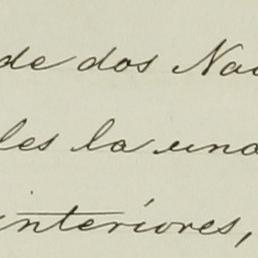 de dos Nac
les la una
interiores,